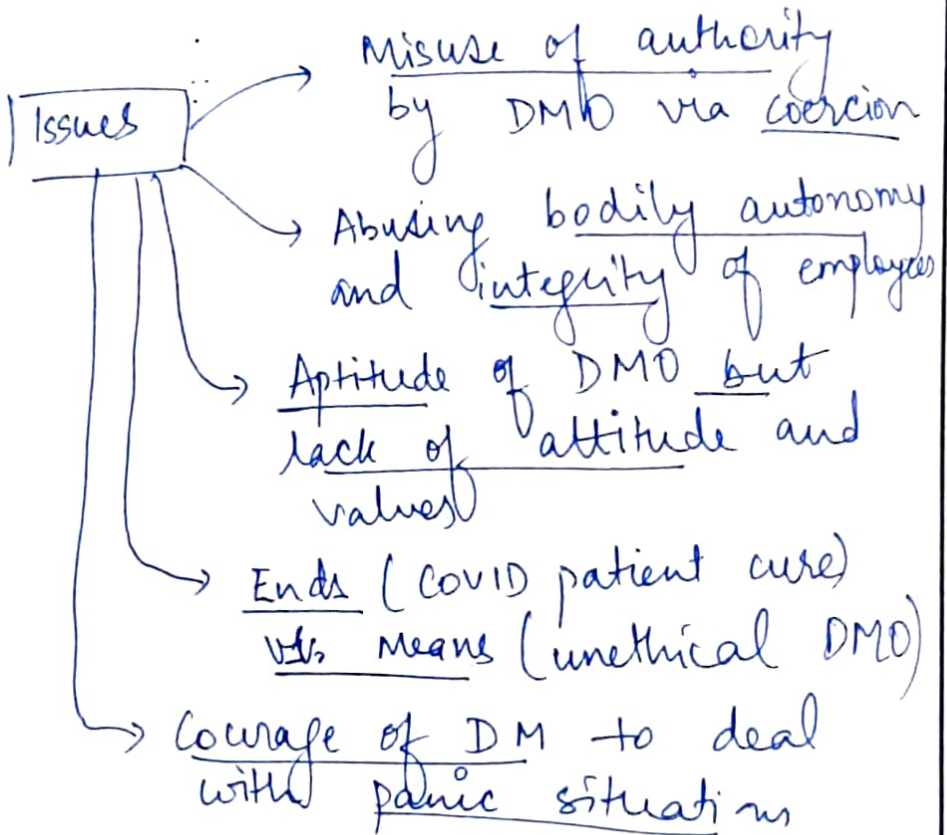 Issues
Misuse of authority
by DMO via coercion
Abusing bodily autonomy
and integrity of employees
Aptitude of DMO but
lack of attitude and
values
Ends (COVID patient cure)
v/s Means (unethical DMO)
Courage of DM to deal
with panic situations